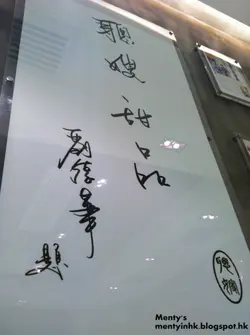 聰嫂甜品
劉德華
題
Menty's
mentyinhk.blogspot.hk